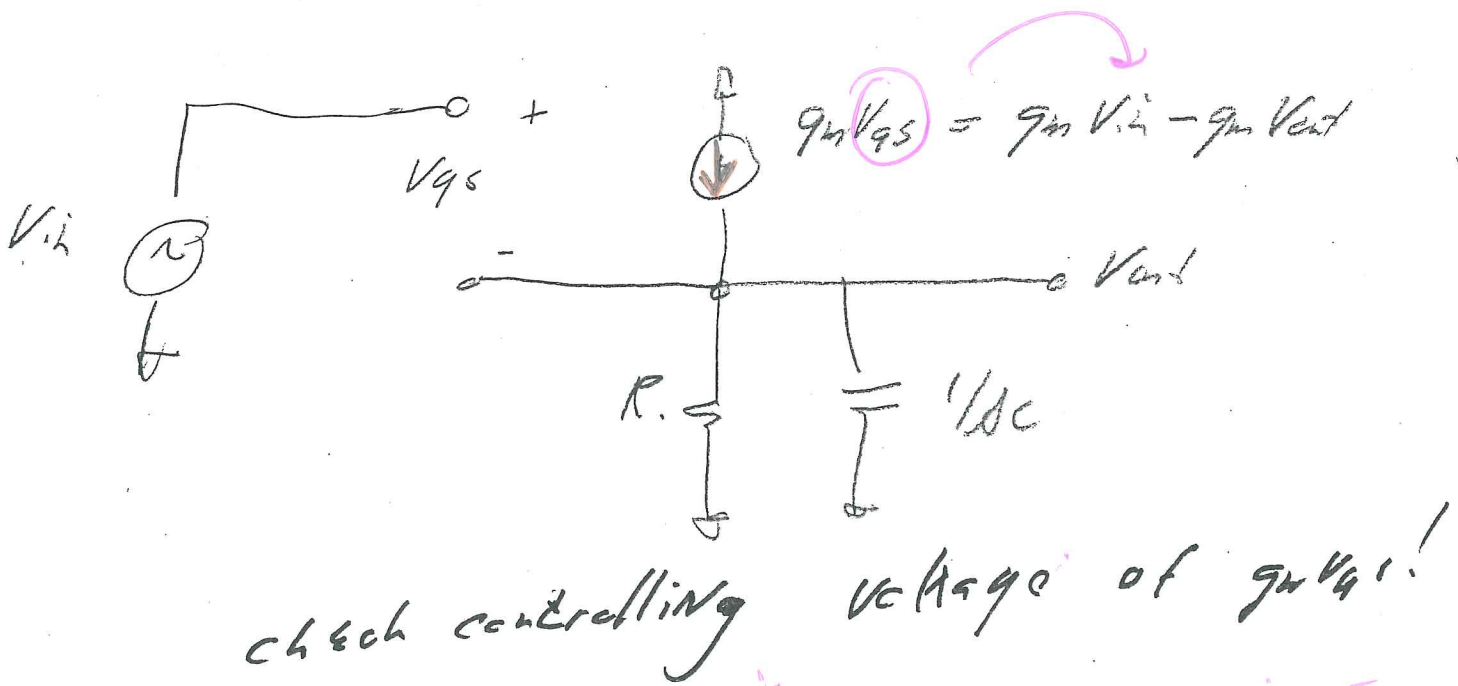 +
gmVgs = gmVin - gmVout
Vgs
Vin
-
Vout
R.
1/sC
check controlling voltage of gmVgs!